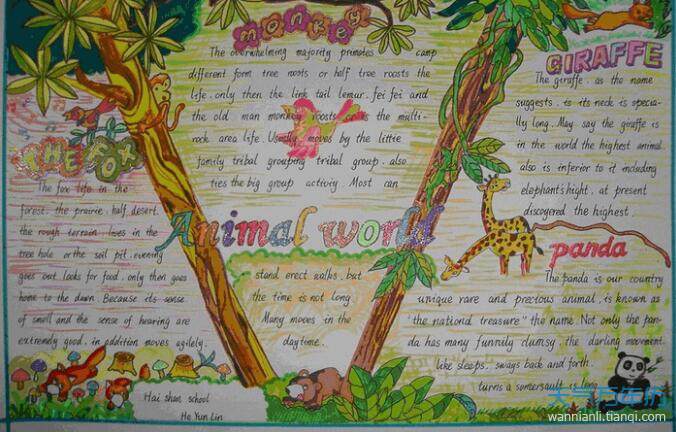 monkey
The overwhelming majority primates camp
different form tree roots or half tree roosts the
life, only then the link tail lemur, fei fei and
the old man monkey roosts the multi-
rock area life. Usually moves by the little
family tribal grouping tribal group. also
ties the big group activity. Most can
stand erect walks, but
the time is not long
Many moves in the
daytime.
THE FOX
The fox life in the
forest. the prairie. half desert.
the rough terrain. lives in the
tree hole or the soil pit. evening
goes out looks for food. only then goes
home to the dawn. Because its sense
of smell and the sense of hearing are
extremely good. in addition moves agilely.
Animal world
GIRAFFE
The giraffe. as the name
suggests. is its neck is specia-
lly long. May say the giraffe is
in the world the highest animal.
also is inferior to it including
elephant's hight. at present
discogered the highest.
panda
The panda is our country
unique rare and precious animal. is known as
"the national treasure" the name. Not only the pan-
da has many funnily clumsy. the darling movement.
like sleeps. sways back and forth.
turns a somersault is long
Hai shan school
He Yun Lin
天气万年历
wannianli.tianqi.com